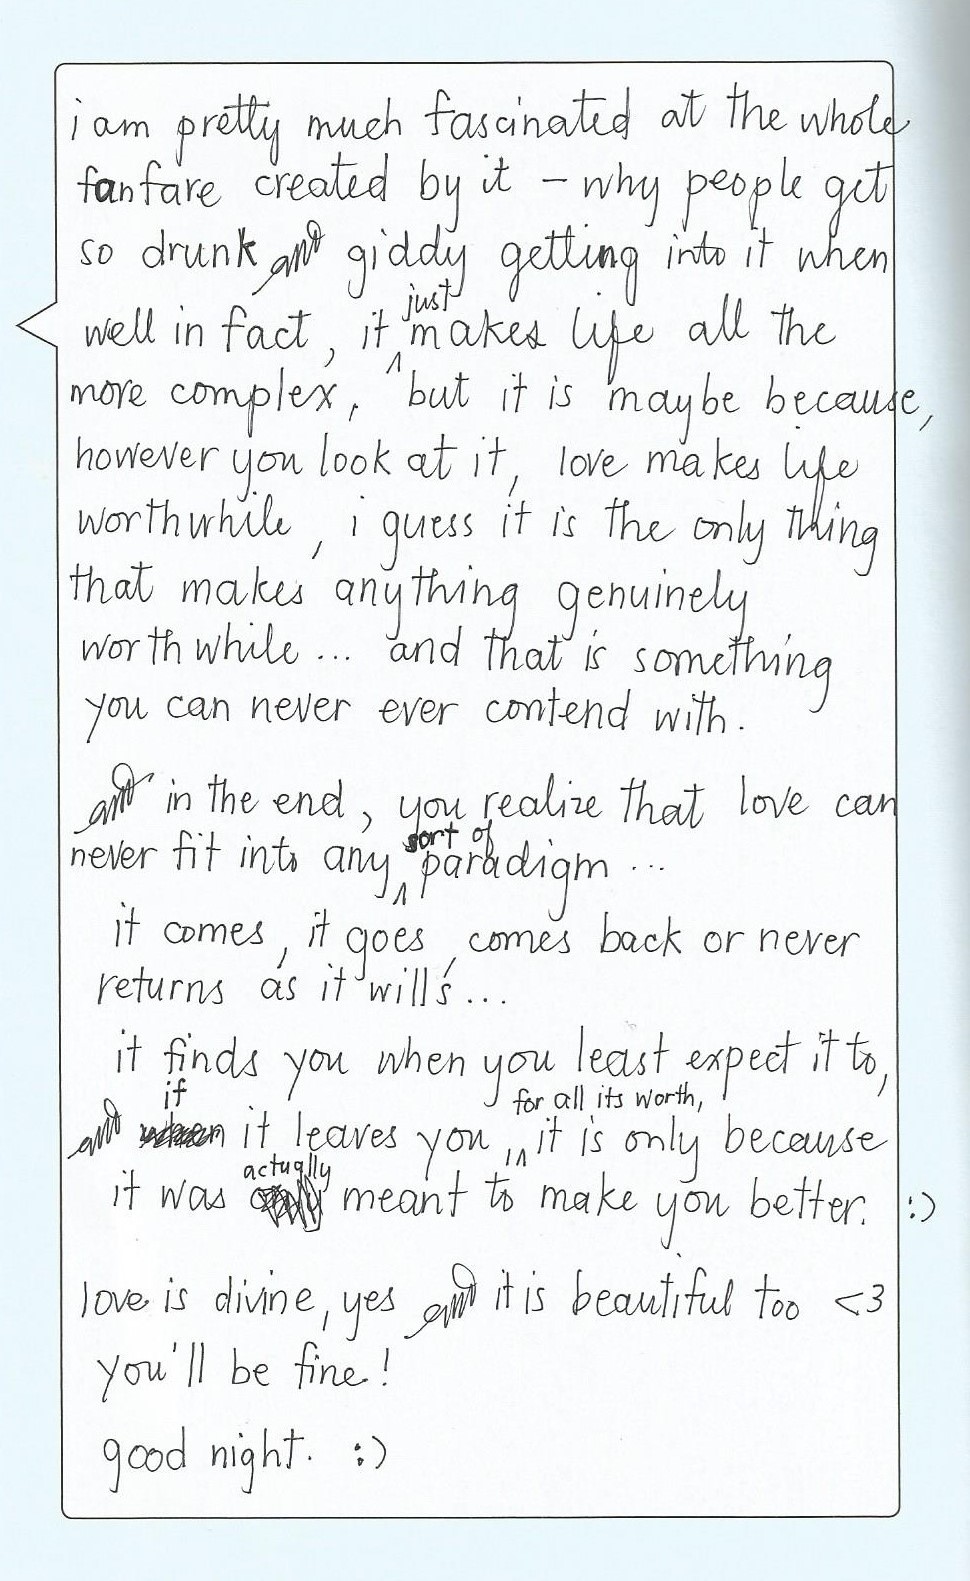 i am pretty much fascinated at the whole
fanfare created by it – why people get
so drunk and giddy getting into it when
well in fact, it just makes life all the
more complex, but it is maybe because,
however you look at it, love makes life
worthwhile, i guess it is the only thing
that makes anything genuinely
worthwhile... and that is something
you can never ever contend with.
and in the end, you realize that love can
never fit into any sort of paradigm ...
it comes, it goes, comes back or never
returns as it will's...
it finds you when you least expect it to,
and if it leaves you, for all its worth, it is only because
it was actually meant to make you better. :)
love is divine, yes and it is beautiful too <3
you'll be fine!
good night. :)